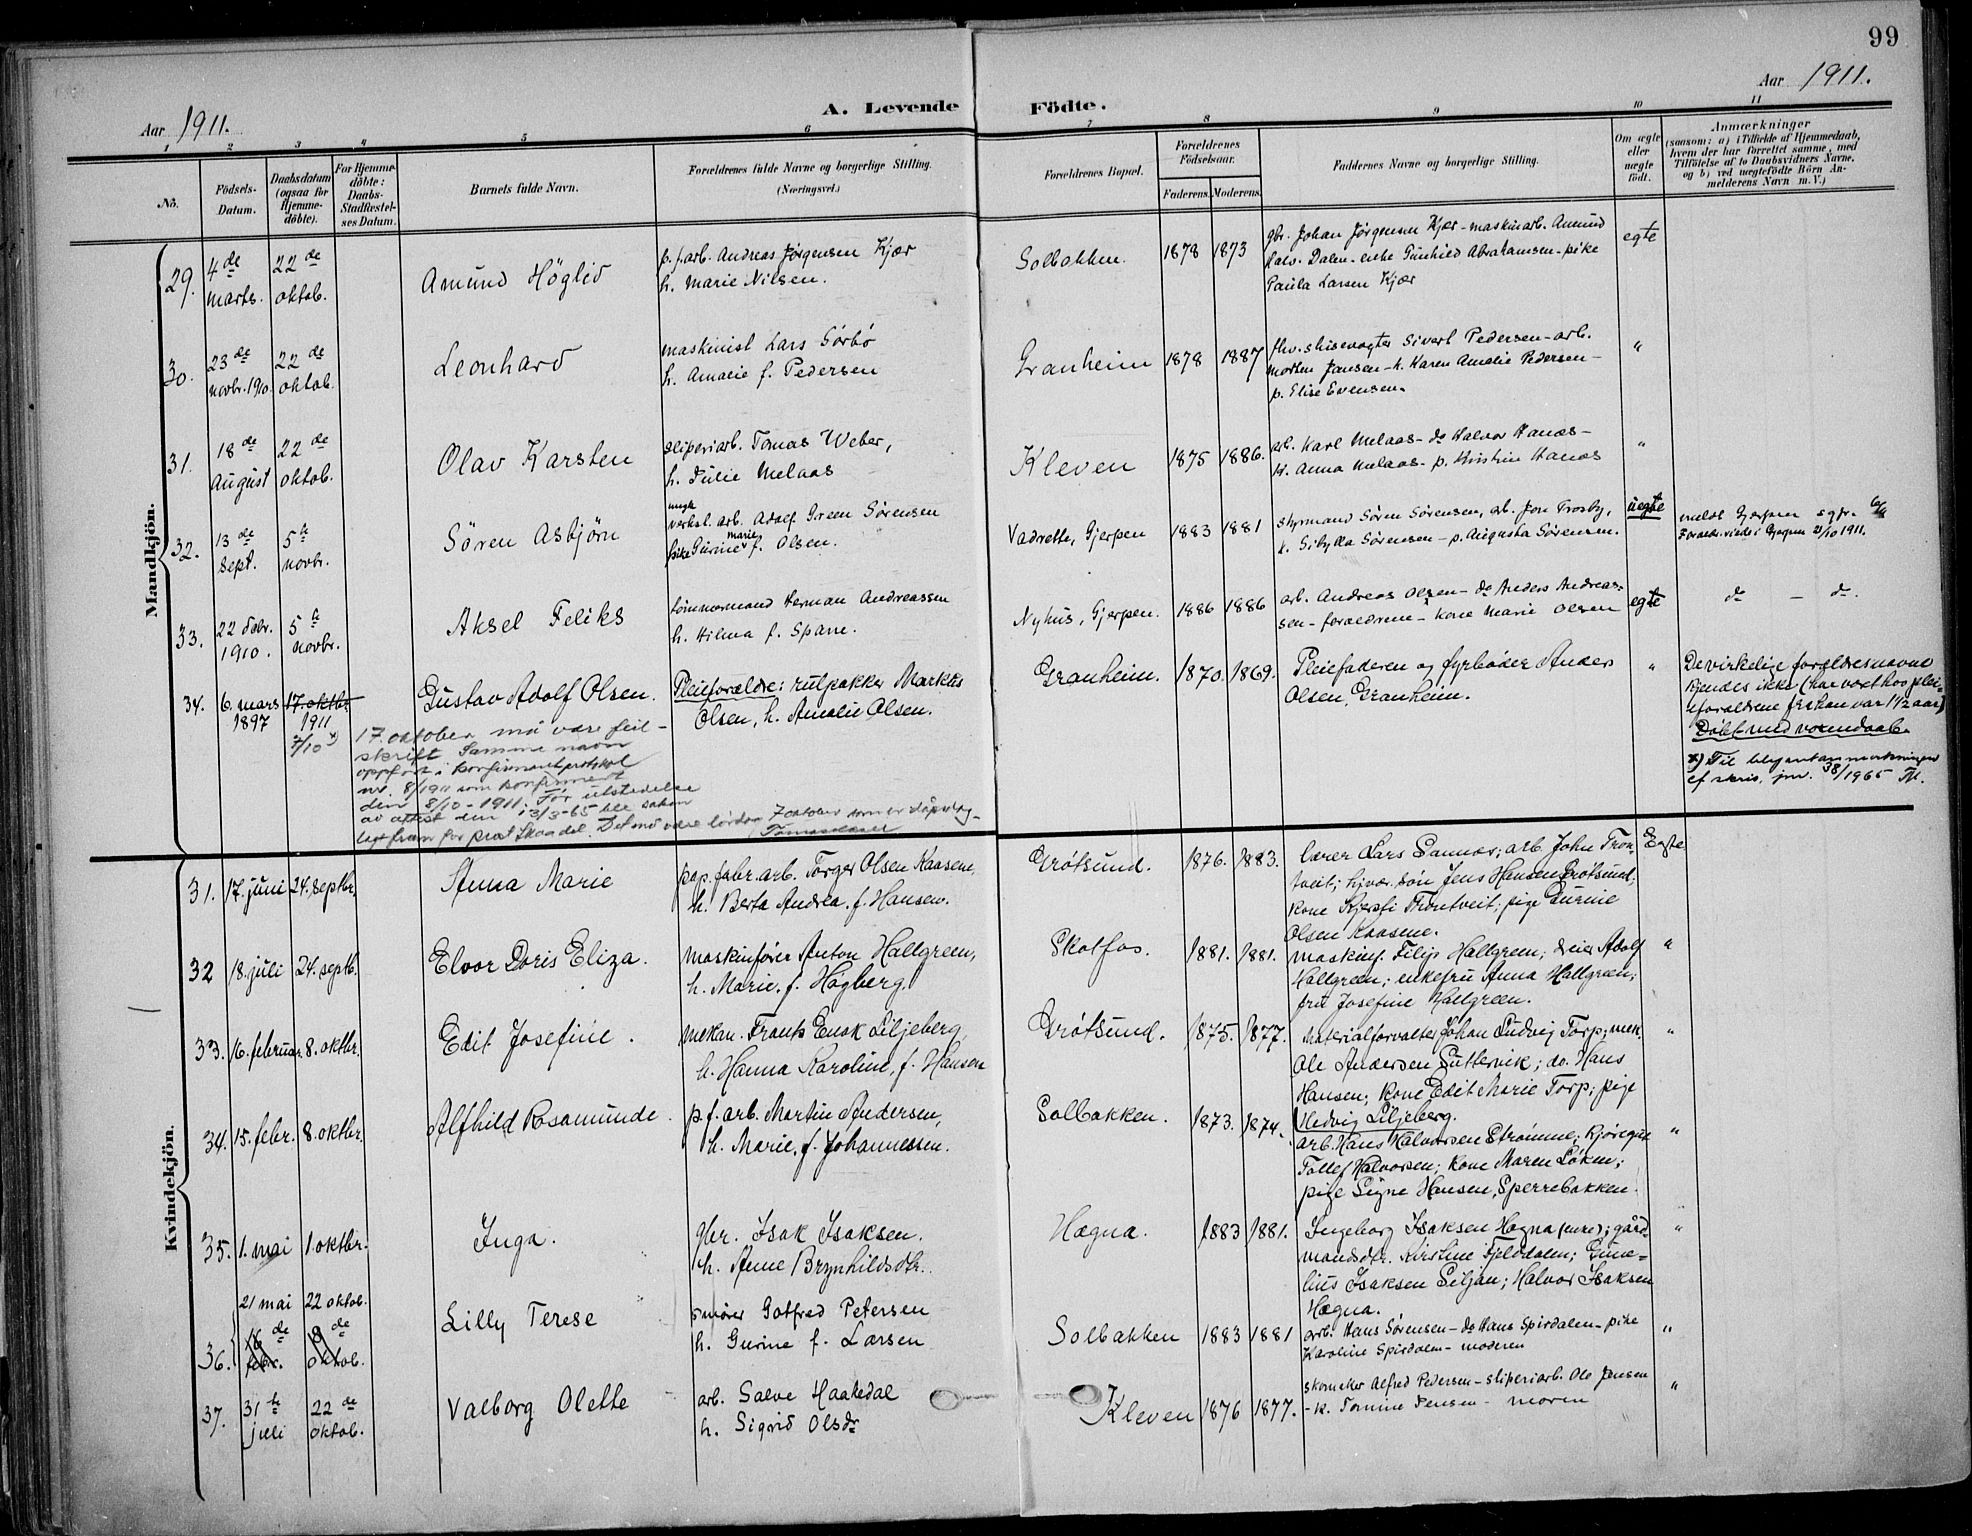 99
Aar 1911.
A. Levende Födte.
Aar 1911.
1 2 3 4 5 6 7 8 9 10 11
No.
Födsels-
Datum.
Daabsdatum
(ogsaa for
Hjemme-
döbte).
For Hjemme-
döbte:
Daabs-
Stadfæstel-
ses Datum.
Barnets fulde Navn.
Forældrenes fulde Navne og borgerlige Stilling.
(Næringsvei.)
Forældrenes Bopæl.
Forældrenes
Födselsaar.
Faderens. Moderens.
Faddernes Navne og borgerlige Stilling.
Om ægte
eller
uægte
födt.
Anmærkninger
(saasom: a) i Tilfælde af Hjemmedaab,
hvem der har forrettet samme, med
Tilföielse af to Daabsvidners Navne,
og b) ved uægtefödte Börn An-
melderens Navn m. V.)
Mandkjön.
29. 4de marts. 22de oktob.
Amund Höglid
p.f.arb. Andreas Jørgensen Kjær
h. Marie Nilsen.
Solbakken. 1878 1873
gbr. Johan Jørgensen Kjær - maskinarb. Amund
Halv. Dalen - enke Gunhild Abrahamsen - pike
Paula Larsen Kjær
egte
30. 23de novbr. 1910. 22de oktob.
Leonhard
maskinist Lars Sørbø
h. Amalie f. Pedersen
Granheim 1878 1887
fhv. skisevogter Sivert Pedersen - arb.
Morten Jansen - k. Karen Amalie Pedersen -
p. Elise Evensen.
"
31. 18de August 22de oktob.
Olav Karsten
sliperiarb. Tomas Weber,
h. Julie Melaas
Kleven 1875 1886.
arb. Karl Melaas - do Halvor Hanæs -
k. Anna Melaas - p. Kristine Hanæs
"
32. 13de sept. 5te novbr.
Sören Asbjørn
ungk.
verkst. arb. Adolf Green Sørensen
marie
pike Gurine f. Olsen.
Vadrette, Gjerpen 1883 1881
styrmand Søren Sørensen, arb. Jon Frosby,
k. Sibylla Sørensen - p. Augusta Sørensen.
uegte
meldt Gjerpen sgpr.
Foreldr. viede i Gjerpen 21/10 1911.
33. 22 debr. 1910. 5te novbr.
Aksel Feliks
tömmermand Herman Andreassen
h. Hilma f. Spane.
Nyhus, Gjerpen. 1886 1886
arb. Andreas Olsen - do Anders Andreas-
sen - foreldrene - kone Marie Olsen
egte
do - do.
34. 6. mars 1897 17. oktbr. 1911 7/10 x)
Gustav Adolf Olsen.
Pleieforældre: rulpakker Markus
Olsen, h. Amalie Olsen.
Granheim. 1870. 1869.
Pleiefaderen og fyrbøder Anders
Olsen, Granheim.
"
De virkelige forældres navne
kjendes ikke (har vøxt hos plei-
eforældrene fra han var 1 1/2 aar)
Döbt med voxendaab.
x) Til blyantanmerkningen
cf skriv. jnr. 38/1965
17. oktober må være feil-
skrift. Samme navn
oppført i konfirmantprotokol
nr. 8/1911 som konfirmert
den 8/10 - 1911. Før utstedelse
av attest den 13/3-65 ble saken
lagt fram for prost Skaadel. Det må være lørdag 7 oktober som er dåpsdag.
Kvindekjön.
31. 17. juni 24. septbr.
Anna Marie
pap. fabr. arb. Torger Olsen Kaasene,
h. Berta Andrea. f. Hansen.
Grøtsund. 1876. 1883.
Lærer Lars Sannæs; arb. John Tron-
tveit; hjvær. søn Jens Hansen Grøtsund;
kone Kjersti Trontveit; pige Gurine
Olsen Kaasene.
Egte
32 18. juli 24. septb.
Elvor Doris Eliza.
maskinfører Anton Hallgreen,
h. Marie. f. Högberg.
Skotfos. 1881. 1881.
maskinf. Filip Hallgreen; dreier Adolf
Hallgreen; enkefru Anna Hallgreen;
fru Josefine Hallgreen.
"
33. 16. februar. 8. oktbr.
Edit Josefine.
mekan. Frants Enok Liljeberg
h. Hanna Karoline, f. Hansen
Grøtsund. 1875. 1877.
Materialforvalter Johan Ludvig Torp; mek.
Ole Andersen Suttervik; do. Hans
Hansen; kone Edit Marie Torp; pige
Hedvig Liljeberg.
"
34. 15. febr. 8. oktbr.
Alfhild Rosamunde.
p.f. arb. Martin Andersen,
h. Marie, f. Johannessen.
Solbakken. 1873. 1874.
arb. Hans Halvorsen Strømme; kjøregut
Tollef Halvorsen; kone Maren Løken;
pige Signe Hansen, Sperrebakken.
"
35. 1. mai 1. oktbr.
Inga.
gbr. Isak Isaksen.
h. Anne Brynhildsdtr.
Hægna. 1883 1881.
Ingeborg Isaksen Hægna (eure); gård-
mandsdtr. Kirstine Fjelddalen; Gune-
lius Isaksen Siljan; Halvor Isaksen
Hægna.
"
36. 21 mai 22 oktob.
16de febr. 8de oktob.
Lilly Terese
smører Gotfred Petersen
h. Gurine f. Larsen
Solbakken 1883 1881
arb. Hans Sørensen - do Hans Spirdalen - pike
Karoline Spirdalen - moderen
"
37. 31te juli 22de oktob.
Valborg Olette
arb. Salve Haakedal
h. Sigrid Olsdr
Kleven 1876 1877.
skomaker Alfred Pedersen - sliperiarb. Ole Jansen
- k. Tomine Jensen - moren
"